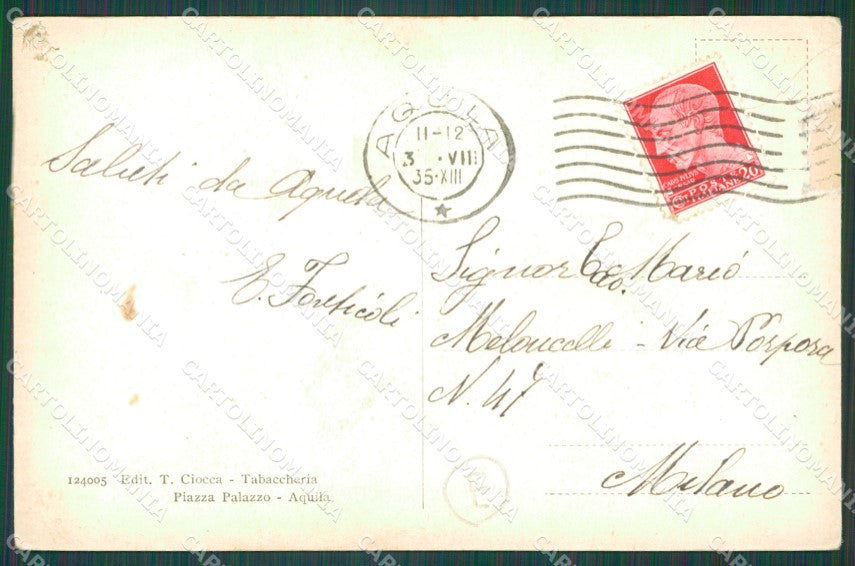 AQUILA
11-12
3 . VIII
35·XIII
CAIUS IULIUS
POSTE
ITALIANE 20
Saluti da Aquila
E. Forticoli
Signor Cao. Mario
Meloncelli - Via Porpora
N. 47
Milano
124005 Edit. T. Ciocca - Tabaccheria
Piazza Palazzo - Aquila.
CARTOLINOMANIA